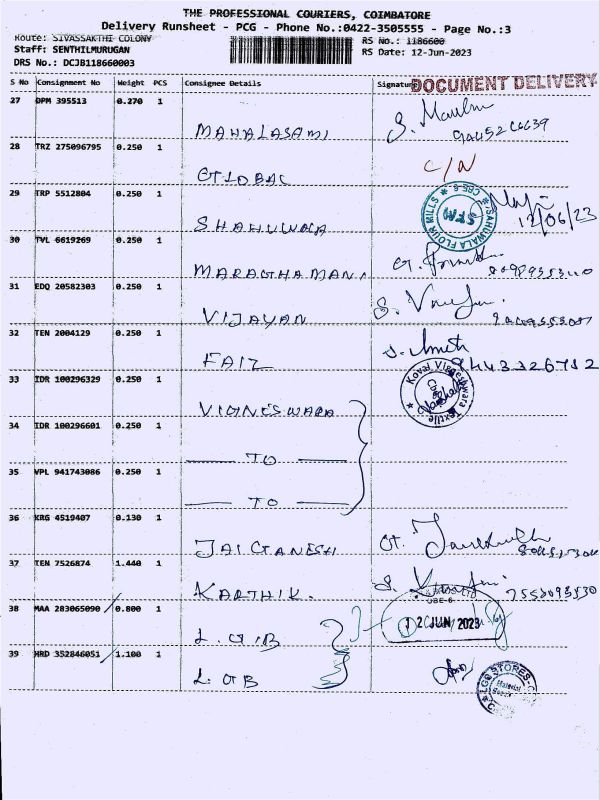 THE PROFESSIONAL COURIERS, COIMBATORE
Delivery Runsheet - PCG - Phone No.:0422-3505555 - Page No.:3
Route: SIVASSAKTHI COLONY
RS No.: 1186600
Staff: SENTHILMURUGAN
RS Date: 12-Jun-2023
DRS No.: DCJB118660003
DOCUMENT DELIVERY
S No Consignment No Weight PCS Consignee Details Signature
27 DPM 395513 0.270 1
MAHALASAMI
28 TRZ 275096795 0.250 1
C/N
GLOBAL
29 TRP 5512804 0.250 1
SAHUWALA FLOUR MILLS CBE-6
SFM
12/06/23
30 TVL 6619269 0.250 1
MARAGTHAMANI
31 EDQ 20582303 0.250 1
VIJAYAN
32 TEN 2004129 0.250 1
FAIZ
9443326712
33 IDR 100296329 0.250 1
Kovai Vigneshwara Textile
VIGNESWARA
34 IDR 100296601 0.250 1
TO
35 VPL 941743086 0.250 1
TO
36 KRG 4519407 0.130 1
JAI GANESH
37 TEN 7526874 1.440 1
KARTHIK.
38 MAA 283065090 0.800 1
12 JUN 2023
L.G.B
39 HRD 352846051 1.100 1
LGB STORES
L.GB